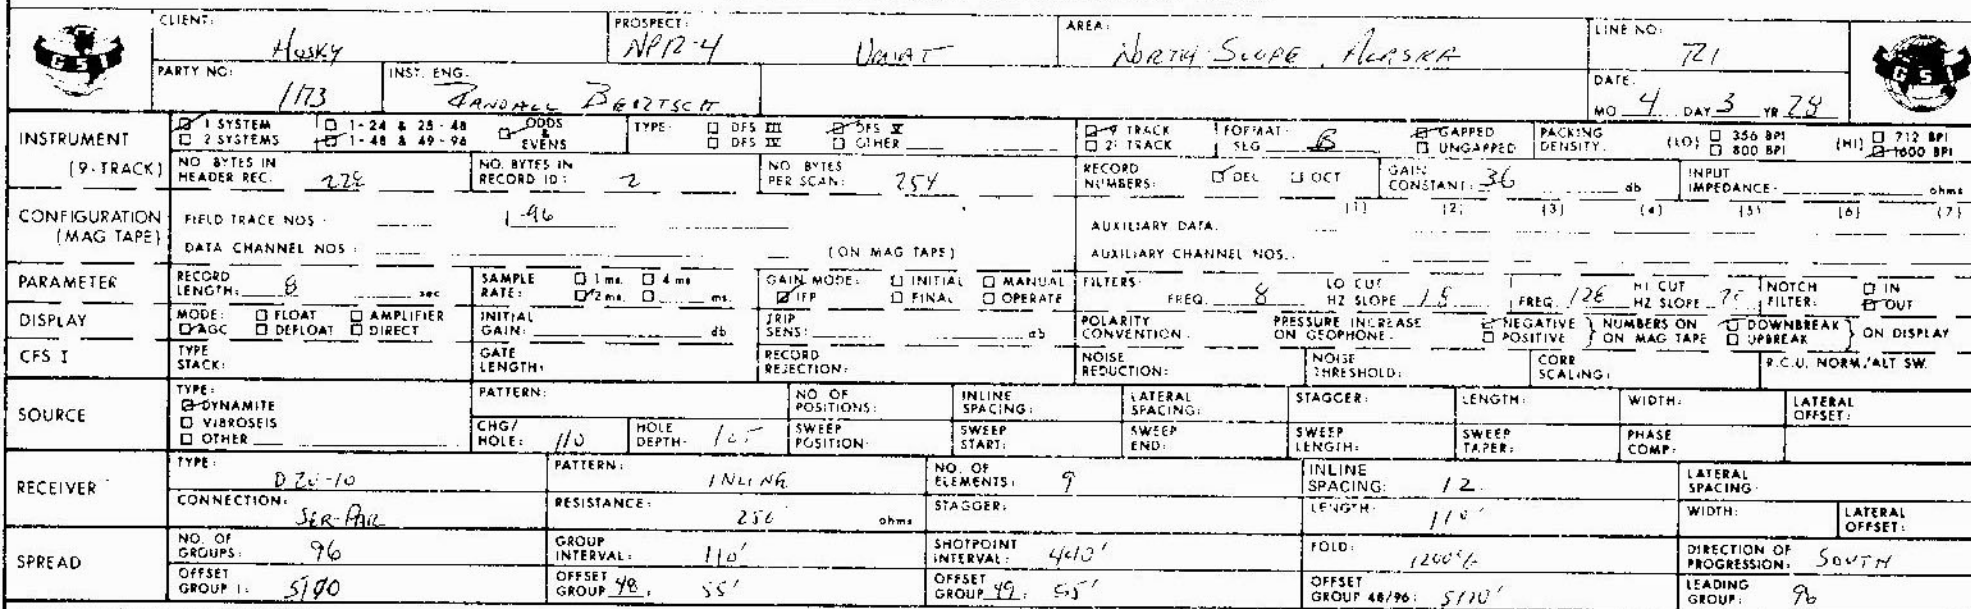 CLIENT: Husky PROSPECT: NPR-4 UMIAT AREA: NORTH SLOPE, ALASKA LINE NO:
GSI GSI
PARTY NO: 1173 INST. ENG. RANDALL BERTSCH DATE:
MO 4 DAY 3 YR 78
INSTRUMENT 1 SYSTEM 1-24 & 25-48 ODDS & EVENS TYPE: DFS III DFS V 9 TRACK FORMAT: SEG B GAPPED PACKING DENSITY: (LO) 356 BPI (HI) 712 BPI
(9-TRACK) 2 SYSTEMS 1-48 & 49-96 DFS IV OTHER 21 TRACK UNGAPPED 800 BPI 1600 BPI
NO. BYTES IN HEADER REC. 228 NO. BYTES IN RECORD ID: 2 NO BYTES PER SCAN: 254 RECORD NUMBERS: DEC OCT GAIN CONSTANT: 36 db INPUT IMPEDANCE- ohms
CONFIGURATION (MAG TAPE) FIELD TRACE NOS - 1-96 AUXILIARY DATA. (1) (2) (3) (4) (5) (6) (7)
DATA CHANNEL NOS: (ON MAG TAPE) AUXILIARY CHANNEL NOS.
PARAMETER RECORD LENGTH: 8 sec SAMPLE RATE: 1 ms. 4 ms 2 ms. ms. GAIN MODE: INITIAL MANUAL IFP FINAL OPERATE FILTERS: FREQ. 8 LO CUT HZ SLOPE 18 FREQ. 128 HI CUT HZ SLOPE NOTCH FILTER: IN OUT
DISPLAY MODE: FLOAT AMPLIFIER AGC DEFLOAT DIRECT INITIAL GAIN: db TRIP SENS: db POLARITY CONVENTION. PRESSURE INCREASE ON GEOPHONE- NEGATIVE POSITIVE } NUMBERS ON ON MAG TAPE DOWNBREAK UPBREAK } ON DISPLAY
CFS I TYPE STACK: GATE LENGTH: RECORD REJECTION: NOISE REDUCTION: NOISE THRESHOLD: CORR SCALING: R.C.U. NORM./ALT SW.
SOURCE TYPE: DYNAMITE VIBROSEIS OTHER PATTERN: NO OF POSITIONS: INLINE SPACING: LATERAL SPACING: STAGGER: LENGTH: WIDTH: LATERAL OFFSET:
CHG/HOLE: 110 HOLE DEPTH- SWEEP POSITION- SWEEP START: SWEEP END: SWEEP LENGTH: SWEEP TAPER: PHASE COMP:
RECEIVER TYPE: PATTERN: INLINE NO. OF ELEMENTS: 9 INLINE SPACING: 12 LATERAL SPACING-
CONNECTION: SER-PAR RESISTANCE: ohms STAGGER: LENGTH: 110' WIDTH: LATERAL OFFSET:
SPREAD NO. OF GROUPS: 96 GROUP INTERVAL: 110' SHOTPOINT INTERVAL: 440' FOLD: 1200% DIRECTION OF PROGRESSION: SOUTH
OFFSET GROUP 1: OFFSET GROUP 48: 55' OFFSET GROUP 49: 55' OFFSET GROUP 48/96: LEADING GROUP: 96